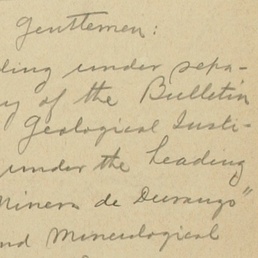 Gentlemen:
ding under sepa-
y of the Bulletin
Geological Insti-
under the heading
Minera de Durango"
nd Mineralogical